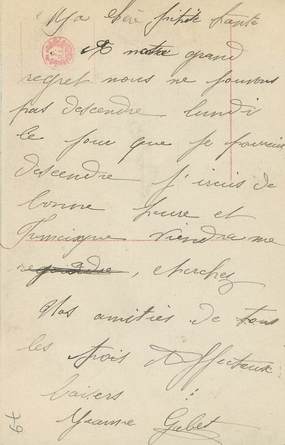 Ma chère petite tante
A notre grand
regret nous ne pouvons
pas descendre lundi
le jour que je pourrais
descendre j'irais de
bonne heure et
viendra me
chercher
Nos amitiés de tous
les trois Affectueux
baisers
Jeanne